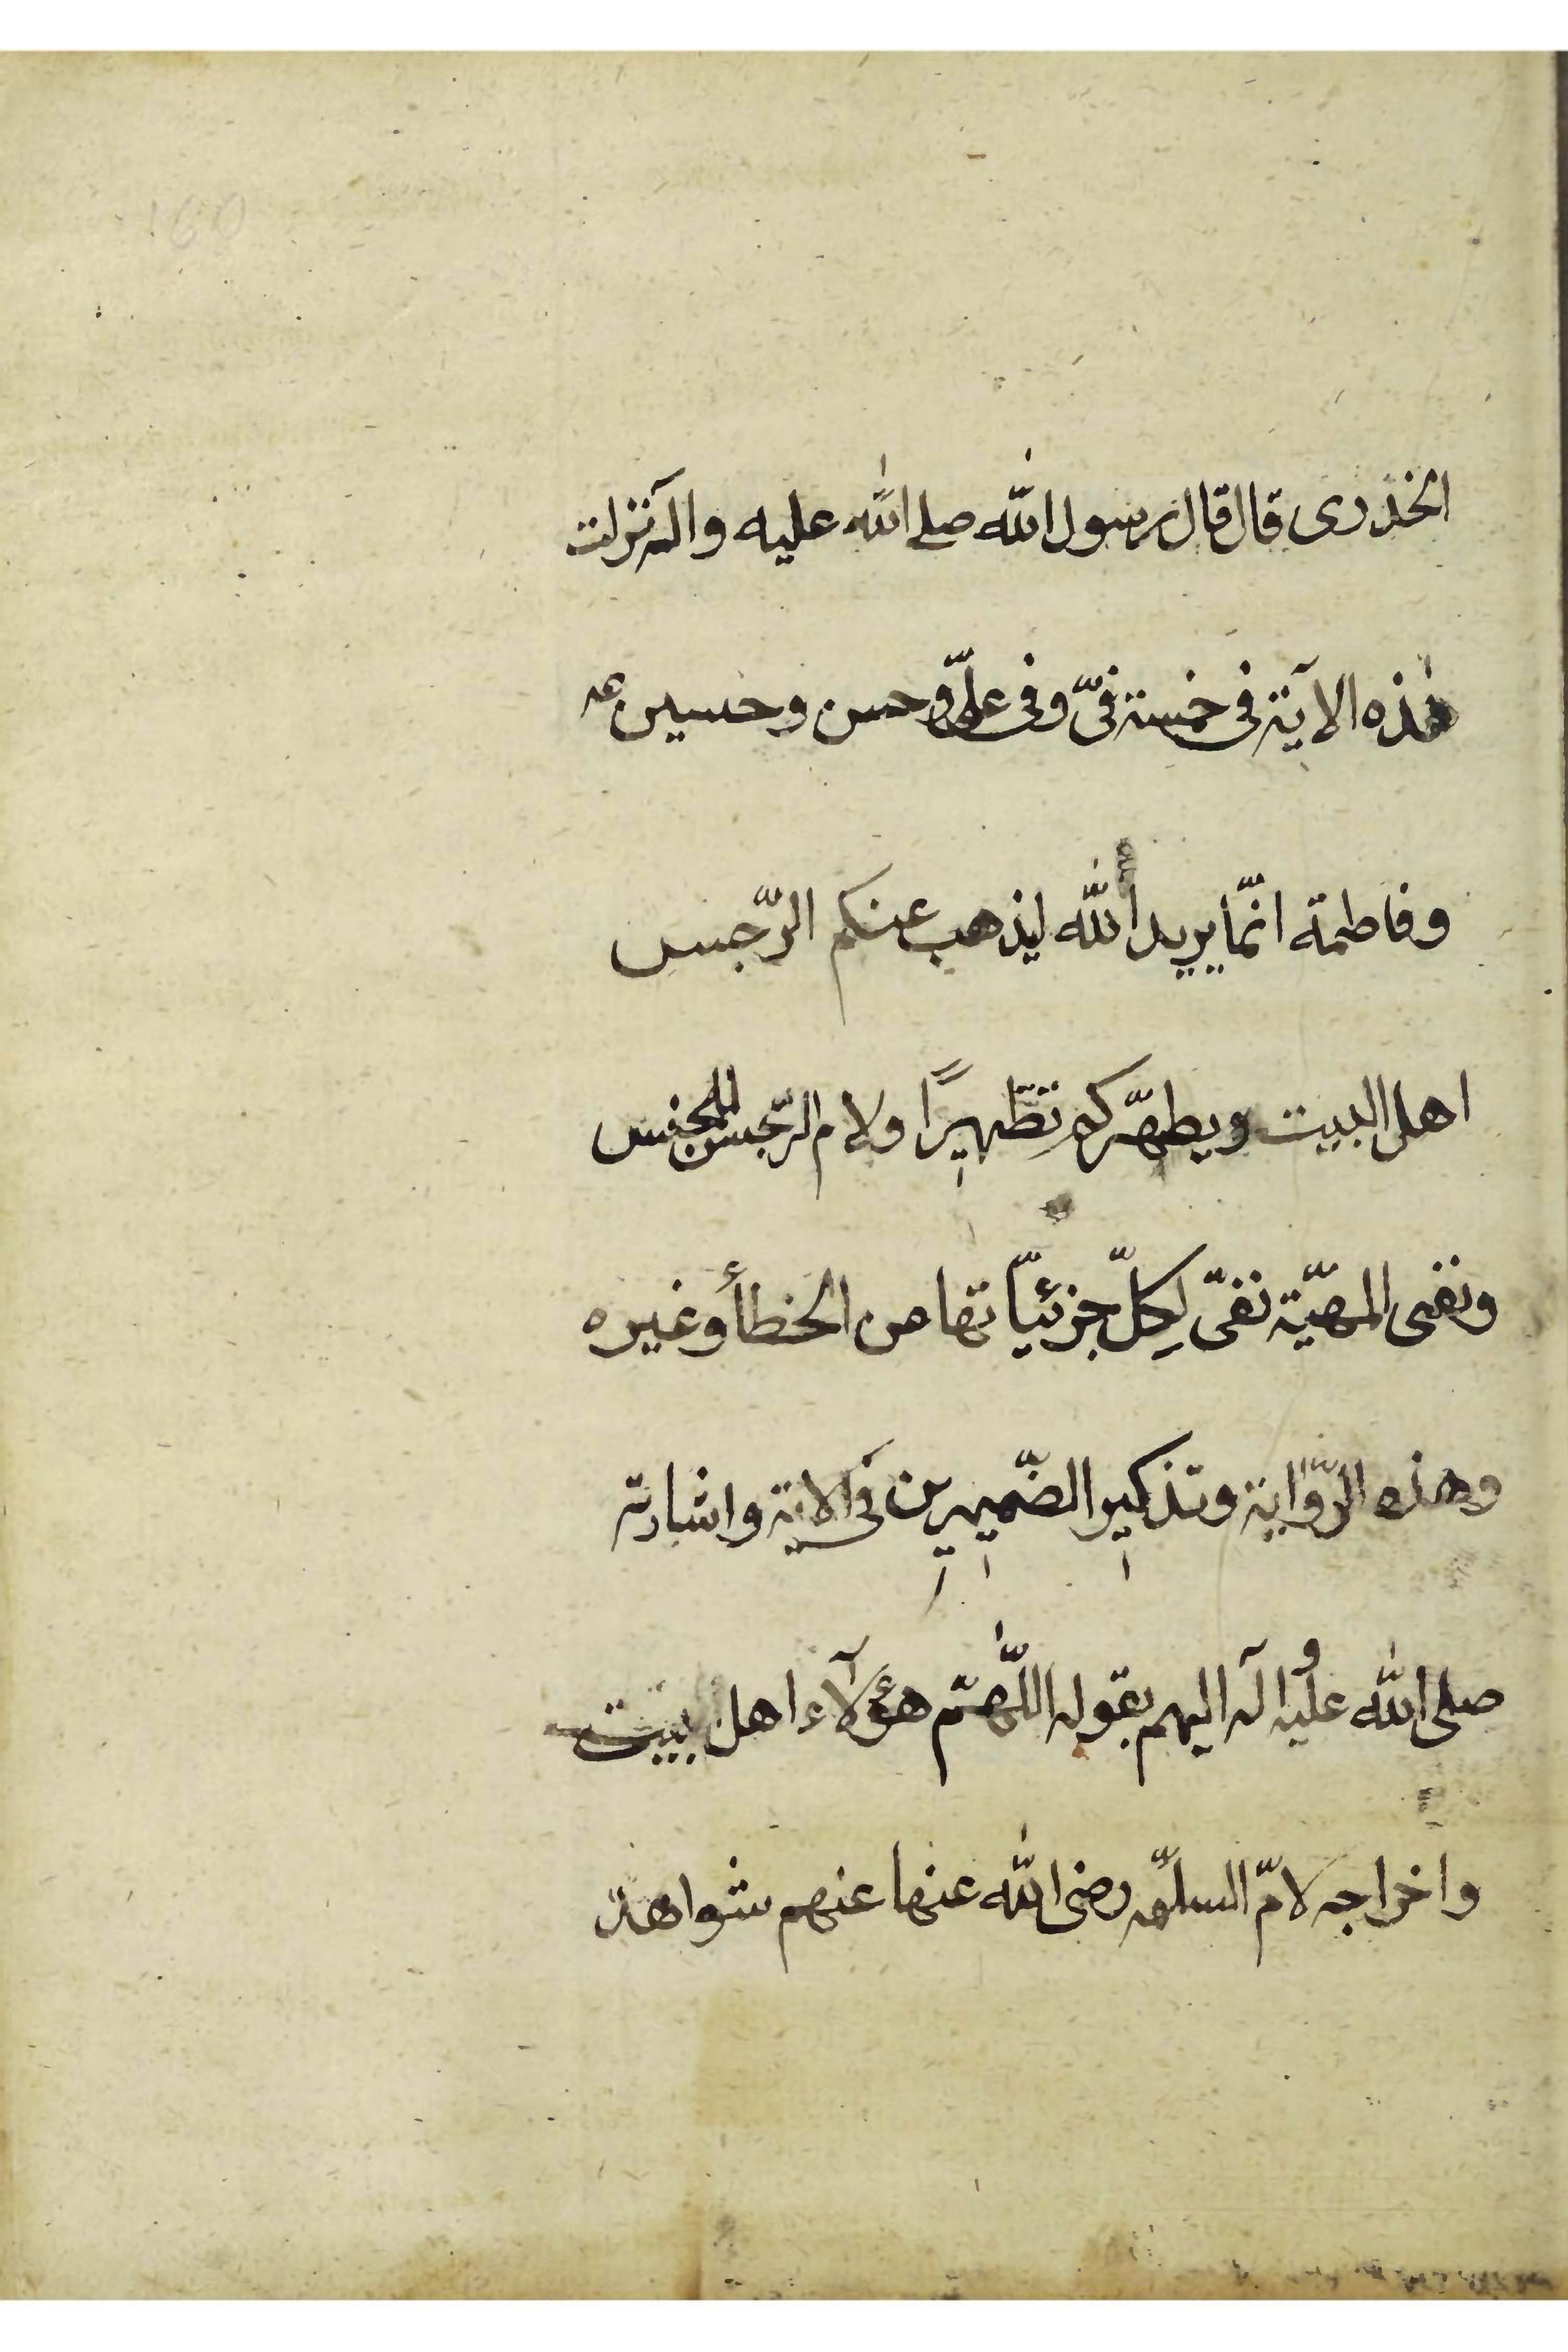 الخدرى قال قال رسول الله صلى الله عليه وآله نزلت
هذه الآية فى خمسة فىّ وفى علىّ وحسن وحسين ع
وفاطمة انّما يريد الله ليذهب عنكم الرّجس
اهل البيت ويطهّركم تطهيرًا ولام الرّجس للجنس
ونفى المهيّة نفىّ لِكلّ جزئيّاتها من الخطأ وغيره
وهذه الرّواية وتذكير الضّميرين فى الآية واشارته
صلى الله عليه وآله اليهم بقوله اللّهمّ هؤلآء اهل بيتى
واخراجه لامّ السلمّه رضى الله عنها عنهم شواهد